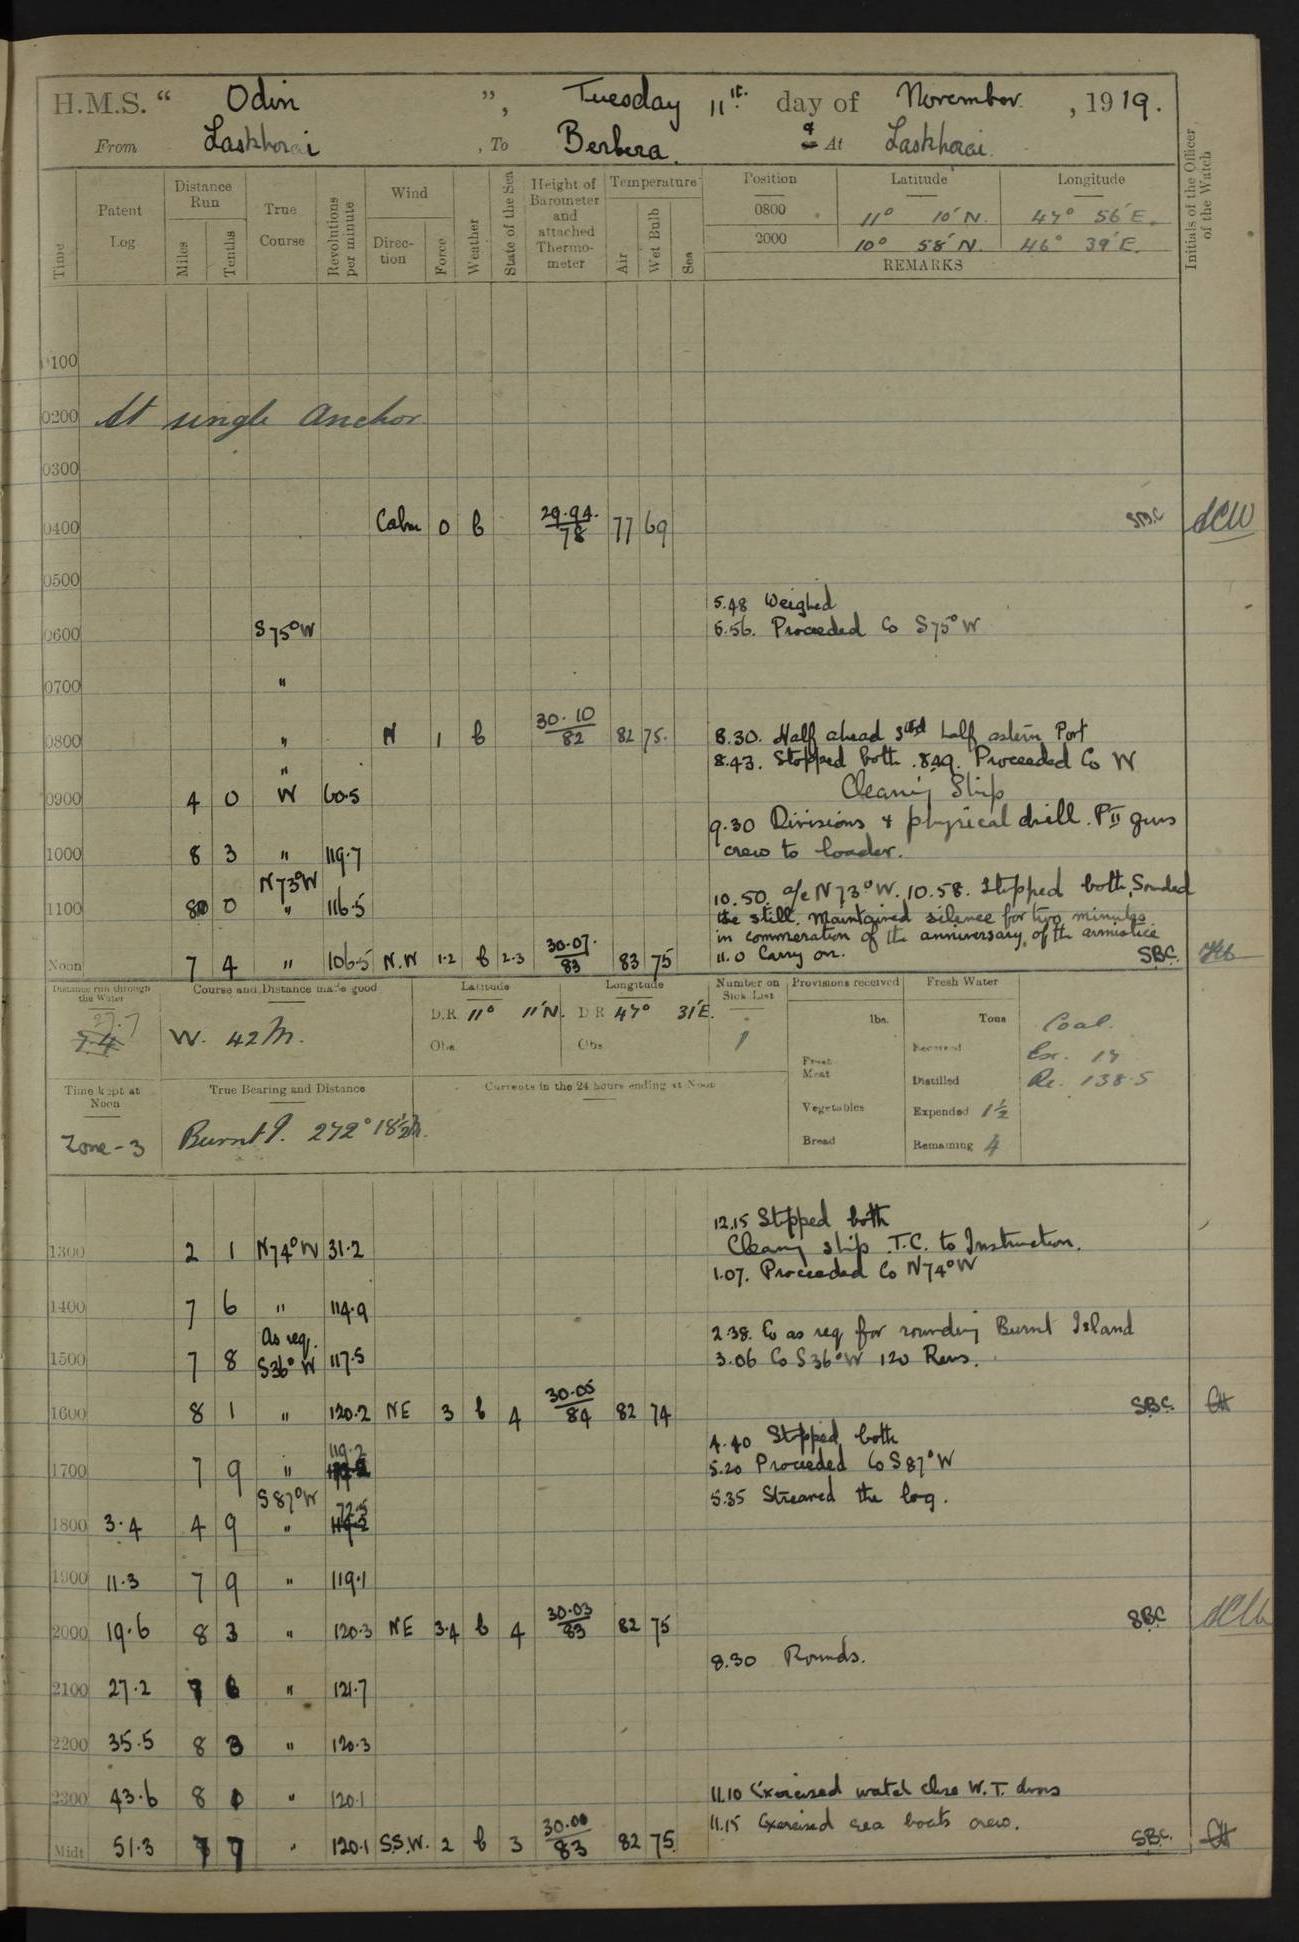 H.M.S. " Odin ", Tuesday 11th day of November, 1919.
From Laskhorai, To Berbera. & At Laskhorai.
Time
Patent Log
Distance Run
Miles
Tenths
True Course
Revolutions per minute
Wind
Direction
Force
Weather
State of the Sea
Height of Barometer and attached Thermometer
Temperature
Air
Wet Bulb
Sea
Position Latitude Longitude
0800 11° 10' N. 47° 56' E.
2000 10° 58' N. 46° 39' E.
REMARKS
Initials of the Officer of the Watch
0100
0200 At single anchor
0300
0400 Calm 0 b 29.94. 78 77 69 SBC
0500
5.48 Weighed
0600 S 75° W 5.56. Proceeded Co S 75° W
0700 "
0800 " N 1 b 30.10 82 82 75. 8.30. Half ahead Stbd half astern Port
" 8.43. Stopped both. 8.49. Proceeded Co W
0900 4 0 W 60.5 Cleaning Ship
9.30 Divisions & physical drill. PII guns
1000 8 3 " 119.7 crew to loader.
N 73° W 10.50. a/c N 73° W. 10.58. Stopped both, Sounded
1100 8 0 " 116.5 the still. Maintained silence for two minutes
in commeration of the anniversary of the armistice
Noon 7 4 " 106.5 N.W 1-2 b 2-3 30.07. 83 83 75 11.0 Carry on. SBC.
Distance run through the Water
27.7
Course and Distance made good
W. 42 M.
Latitude
D.R. 11° 11' N.
Obs
Longitude
D R 47° 31' E.
Obs
Number on Sick List
1
Provisions received
lbs.
Fresh Meat
Vegetables
Bread
Fresh Water
Tons
Received
Distilled
Expended 1½
Remaining 4
Coal.
Ex. 17
Re. 138.5
Time kept at Noon
Zone - 3
True Bearing and Distance
Burnt I. 272° 18½ M.
Currents in the 24 hours ending at Noon
12.15 Stopped both
1300 2 1 N 74° W 31.2 Cleaning ship. T.C. to Instruction.
1.07. Proceeded Co N 74° W
1400 7 6 " 114.9
As req. 2.38. Co as req for rounding Burnt Island
1500 7 8 S 36° W 117.5 3.06 Co S 36° W 120 Revs.
1600 8 1 " 120.2 NE 3 b 4 30.05 84 82 74 SBC.
4.40 Stopped both
1700 7 9 " 119.2 5.20 Proceeded Co S 87° W
S 87° W 5.35 Streamed the log.
1800 3.4 4 9 " 72.5
1900 11.3 7 9 " 119.1
2000 19.6 8 3 " 120.3 NE 3-4 b 4 30.03 83 82 75 SBC
8.30 Rounds.
2100 27.2 7 6 " 121.7
2200 35.5 8 3 " 120.3
2300 43.6 8 1 " 120.1 11.10 Exercised watch close W.T. doors
11.15 Exercised sea boats crew.
Midt 51.3 7 7 " 120.1 S.S.W. 2 b 3 30.00 83 82 75. SBC.